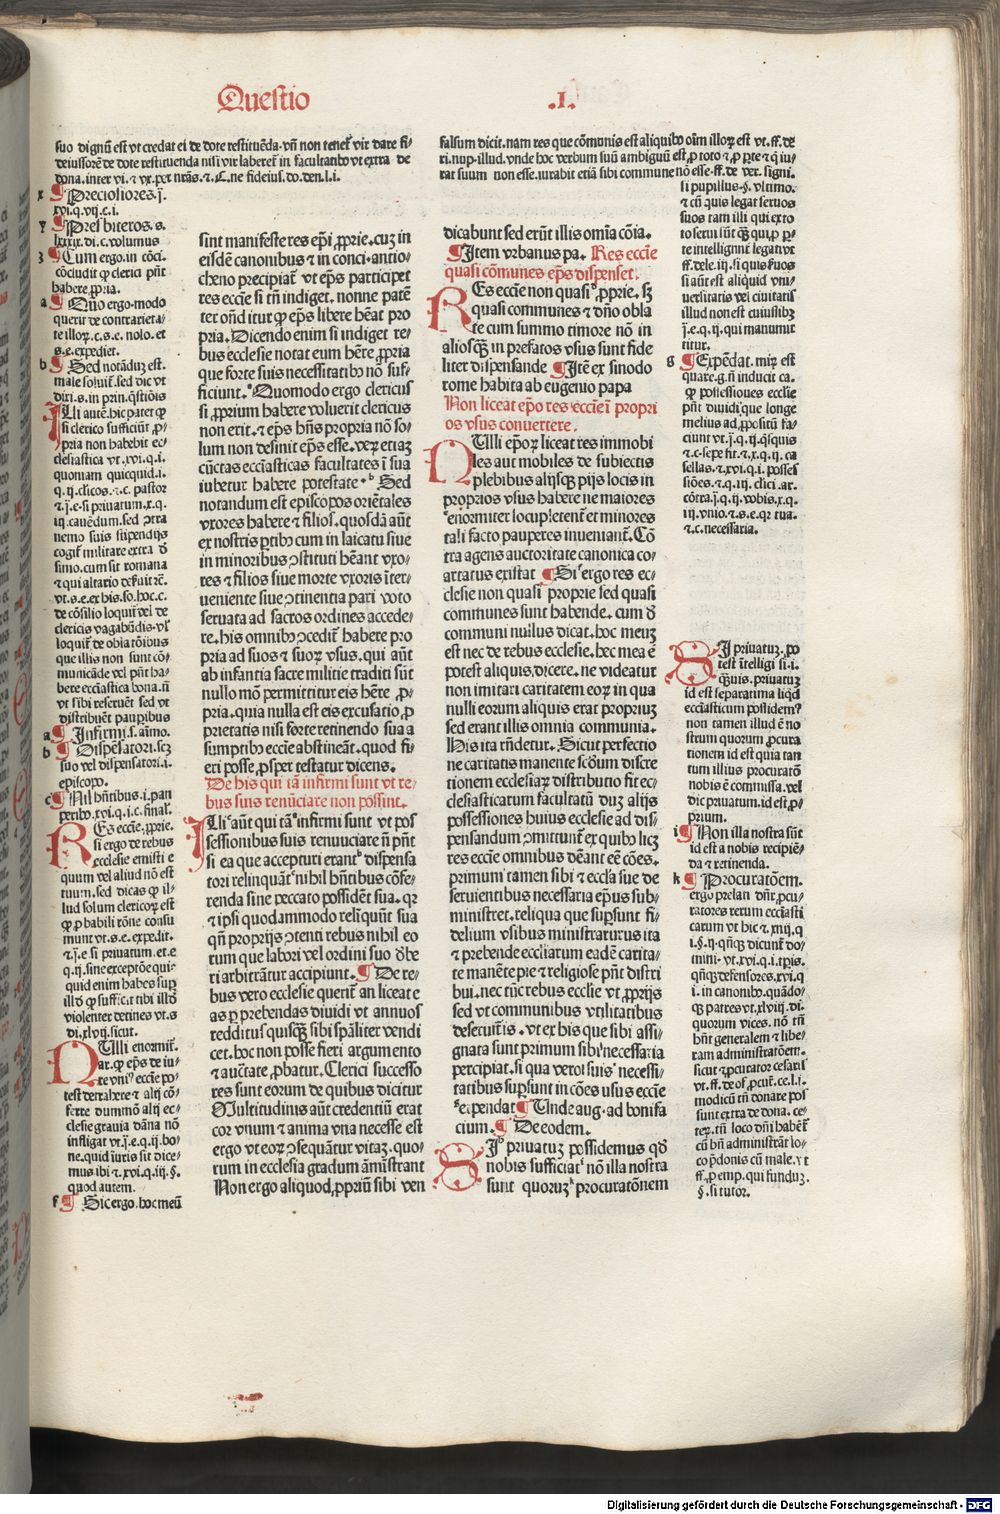 Questio .I.
suo dignū est vt credat ei de dote restituēda. vñ non tenet vir dare fi⸗
deiussorē de dote restituenda nisi vir laberet in facultatibꝰ vt extra de
dona. inter vi. ⁊ vx. per nrās. ⁊ C. ne fideius. do. den. l. i.
x ¶ Preciosiores. j.
xvi. q. vij. c. i.
y ¶ Presbiteros. s.
lxxix. di. c. volumus
ʒ ¶ Cum ergo. in cōcl.
cōcludit ꝙ clerici pn̄t
habere ꝓpria.
a ¶ Quo ergo. modo
querit de contrarieta⸗
te illoꝝ. c. s. e. nolo. et
s. e. expediet.
b ¶ Sed notādū est.
male soluit. sed dic vt
dixi. s. in prin. q̄stiōis
Illi autē. hic patet ꝙ
si clerico sufficiūt ꝓ⸗
pria non habebit ec⸗
clesiastica vt. xvi. q. i.
quoniam quicquid. i.
q. ij. clicos. ⁊. c. pastor
⁊. j. e. si priuatum. x. q.
iij. cauēdum. sed ↄtra
nemo suis stipendijs
cogit militare extra ð
simo. cum sit romana
⁊ qui altario deseruit ⁊c.
vt. s. e. ex his. so. hoc. c.
de cōsilio loquit vel de
clericis vagabūdis. vl
loquit de oblatōibus
que illis non sunt cō⸗
municāde vel pn̄t ha⸗
bere eccīastica bona. n̄
vt sibi reseruēt sed vt
distribuēt paupibus
a ¶ Infirmi. s. aīmo.
b ¶ Dispēsatori. scꝫ
suo vel dispensatori. i.
episcopo.
c ¶ Nil hn̄tibus. i. pau
peribꝰ. xvi. q. i. c. final.
Res eccīe. ꝓprie.
si ergo de rebus
ecclesie emisti e
quum vel aliud nō est
tuum. sed dicas ꝙ il⸗
lud solum clericoꝝ est
ꝙ ꝓbabili rōne consu
munt vt. s. e. expedit.
⁊. j. e. si priuatum. et. e
q. ij. sine exceptōe qui⸗
quid enim habes suꝑ
illd ꝙ sufficit tibi illd
violenter detines vt. s
di. xlvij. sicut.
Nulli enormit.
ar. ꝙ eps de iu⸗
re vniꝰ eccīe po⸗
test detrahere ⁊ alij cō⸗
ferre dummō alij ec⸗
clesie grauia dāna nō
infligat vt. j. e. q. ij. bo⸗
ne. quid iuris sit dice⸗
mus ibi ⁊. xvi. q. iij. §.
quod autem.
f ¶ Sic ergo. hoc meū
sint manifeste res epi ꝓprie. cuꝫ in
eisdē canonibus ⁊ in conci. antio⸗
cheno precipiat vt eps participet
res eccīe si tn̄ indiget. nonne patē
ter on̄ditur ꝙ epūs libere hēat pro
pria. Dicendo enim si indiget re⸗
bus ecclesie notat eum hēre ꝓpria
que forte suis necessitatibꝰ nō suf⸗
ficiunt. ᵃQuomodo ergo clericus
si ꝓprium habere voluerit clericus
non erit. ⁊ eps hn̄s propria nō so⸗
lum non desinit eps esse. verꝫ etiaꝫ
cūctas eccīasticas facultates ī sua
iubetur habere potestate. ᵇ Sed
notandum est episcopos oriētales
vxores habere ⁊ filios. quosdā aūt
ex nostris ꝑtibꝰ cum in laicatu siue
in minoribus ↄstituti hēant vxo⸗
res ⁊ filios siue morte vxoris īter⸗
ueniente siue ↄtinentia pari voto
seruata ad sacros ordines accede⸗
re. his omnibꝰ ↄcedit habere pro
pria ad suos ⁊ suoꝝ vsus. qui aūt
ab infantia sacre militie traditi sūt
nullo mō permittitur eis hēre ꝓ⸗
pria. quia nulla est eis excusatio ꝓ
prietatis nisi forte retinendo sua a
sumptibꝰ eccīe abstineāt. quod fi⸗
eri posse ꝓsper testatur dicens.
De his qui iā infirmi sunt vt re⸗
bus suis renūciare non possint.
Illi ᶜaūt qui tāᵃ infirmi sunt vt pos
sessionibus suis renunciare n̄ pn̄t
si ea que accepturi erantᵇ dispensa
tori relinquātᶜ nihil hn̄tibus cōfe⸗
renda sine peccato possidēt sua. qꝛ
⁊ ipsi quodammodo reliquūt sua
qn̄ proprijs ↄtenti rebus nihil eo
rum que labori vel ordini suo ðbe
ri arbitrātur accipiunt. ¶ De re⸗
bus vero ecclesie querit an liceat e
as ꝑ prebendas diuidi vt annuos
redditus quisqꝫ sibi spāliter vendi
cet. hoc non posse fieri argumento
⁊ auctate ꝓbatur. Clerici successo
res sunt eorum de quibus dicitur
Multitudinis aūt credentiū erat
cor vnum ⁊ anima vna necesse est
ergo vt eoꝝ ↄsequātur vitaꝫ. quo⸗
rum in ecclesia gradum amīstrant
Non ergo aliquod ꝓpriū sibi ven
falsum dicit. nam res que cōmunis est aliquibꝰ oīm illoꝝ est vt. ff. de
ri. nup. illud. vnde hoc verbum suū ambiguū est ꝓ toto ⁊ ꝓ pte ⁊ q̄ iu⸗
rat suum non esse. iurabit etiā sibi commune nō esse. ff. de ver. signi.
dicabunt sed erūt illis omīa cōia.
¶ Item vrbanus pa. Res eccīe
quasi cōmunes eps dispenset.
Res eccīe non quasi ᵇ ꝓprie. sꝫ
quasi communes ⁊ dn̄o obla
te cum summo timore nō in
aliosqꝫ in prefatos vsus sunt fide
liter dispensande ¶ Itē ex sinodo
rome habita ab eugenio papa
Non liceat epo res eccīeī propri
os vsus conuertere.
Nulli epoꝝ liceat res immobi
les aut mobiles de subiectis
plebibus alijsqꝫ pijs locis in
proprios vsus habere ne maiores
ᵉenormiter locupletent et minores
tali facto pauperes inueniant. Cō
tra agens auctoritate canonica co⸗
artatus existat ¶ Si ᶠergo res ec⸗
clesie non quasi proprie sed quasi
communes sunt habende. cum ð
communi nullus dicat. hoc meuꝫ
est nec de rebus ecclesie. hec mea ē
potest aliquis dicere. ne videatur
non imitari caritatem eoꝝ in qua
nulli eorum aliquis erat proprius
sed erant illis omnia communia.
His ita rn̄detur. Sicut perfectio
ne caritatis manente scðum discre
tionem ecclesiaꝝ distributio fit ec⸗
clesiasticarum facultatū duꝫ alijs
possessiones huius ecclesie ad dis⸗
pensandum ↄmittunt ex quibꝰ licꝫ
res eccīe omnibus dēant eē cōes.
primum tamen sibi ⁊ eccīa sue de
seruientibus necessaria epūs sub⸗
ministret. reliqua que suꝑsunt fi⸗
delium vsibus ministraturus ita
⁊ prebende eccliarum eadē carita⸗
te manēte pie ⁊ religiose pn̄t distri
bui. nec tūc rebus ecclie vt ꝓprijs
sed vt communibus vtilitatibus
deseruitis. vt ex his que sibi assi⸗
gnata sunt primum sibi necessaria
percipiat. si qua vero suis necessi⸗
tatibus supsunt in cōes vsus eccīe
ᵍexpendat ¶ Unde aug. ad bonifa
cium. ¶ De eodem.
Siʰ priuatuꝫ possidemus qð
nobis sufficiatⁱ nō illa nostra
sunt quoruꝫ ᵏ procuratōnem
si pupillus. §. vltimo.
⁊ cū quis legat seruos
suos tam illi qui ex to
to serui sūt qꝫ qui ꝓ p⸗
te intelligunt legati vt
ff. de le. iij. si quis suos
si aūt est aliquid vni⸗
uersitatis vel ciuitatis
illud non est cuiuslibꝫ
j. e. q. ij. qui manumit
titur.
g ¶ Expēdat. miꝝ est
quare. g. n̄ inducit ca.
ꝙ possessiones ecclie
pn̄t diuidi ꝙ longe
melius ad ꝓpositū fa⸗
ciunt vt. j. q. ij. q̄squis
⁊ c. sepe fit. ⁊. x. q. ij. ca
sellas. ⁊. xvi. q. i. posses
siōes. ⁊. q. iij. clici. ar.
cōtra. j. q. ij. vobis. x. q.
iij. vnio. ⁊. s. e. qꝛ tua.
⁊. c. necessaria.
Si priuatuꝫ. po
test ītelligi si. i.
q̄uis. priuatuꝫ
id est separatim a liqd
eccīasticum possidemꝰ
non tamen illud ē no
strum quorum ꝓcura
tionem id est quia tan
tum illius procuratō
nobis ē commissa. vel
dic priuatum. id est ꝓ⸗
prium.
i ¶ Non illa nostra sūt
id est a nobis recipiē⸗
da ⁊ retinenda.
k ¶ Procuratōem.
ergo prelati dn̄r. ꝓcu⸗
ratores rerum eccīasti
carum vt hic ⁊. xij. q.
i. §. ij. qn̄qꝫ dicunt do⸗
mini. vt. xvi. q. i. tpis.
qn̄qꝫ defensores. xvi. q
i. in canonibꝰ. quādo⸗
qꝫ patres vt. xlviij. di.
quorum vices. nō tn̄
hn̄t generalem ⁊ libe⸗
ram administratōem.
sicut ꝓcurator cesaris
vt. ff. de of. ꝓcu. ce. l. i.
modicū tn̄ donare pos
sunt extra de dona. ce⸗
teꝝ. tn̄ loco dn̄i habet
cū bn̄ administrāt lo⸗
co p̄donis cū male. vt
ff. ꝓ emp. qui funduꝫ.
§. si tutor.
Digitalisierung gefördert durch die Deutsche Forschungsgemeinschaft - DFG